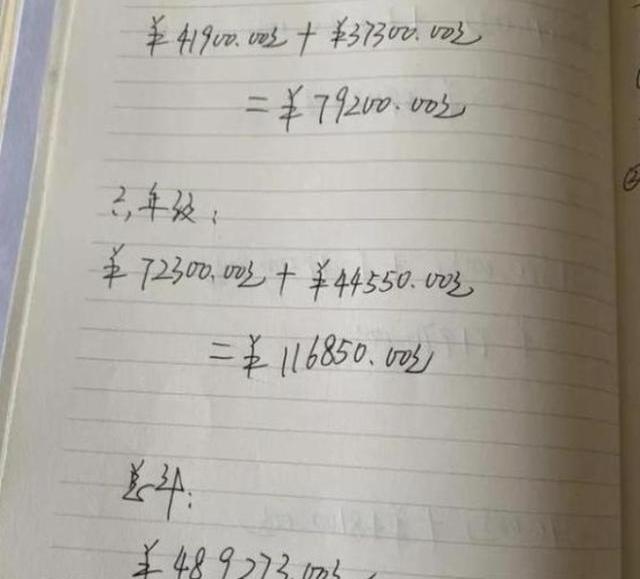 ¥41900.00元+¥37300.00元
=¥79200.00元
六年级:
¥72300.00元+¥44550.00元
=¥116850.00元
总计:
¥489273.00元